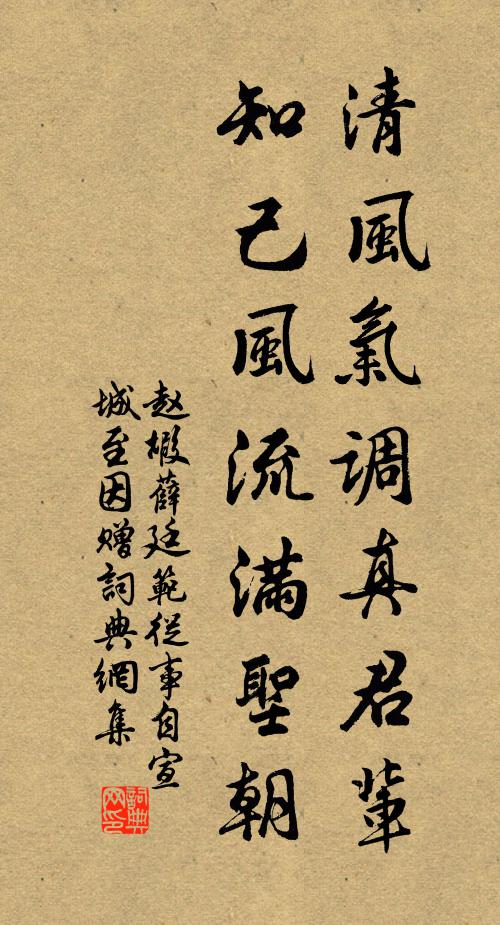 清風氣調真君輩
知己風流滿聖朝
赵嘏薛廷範從事自宣
城至因赠詞典網集
詞典
网印